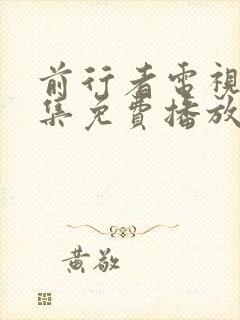 前行者電視
集免費播放
黃敬